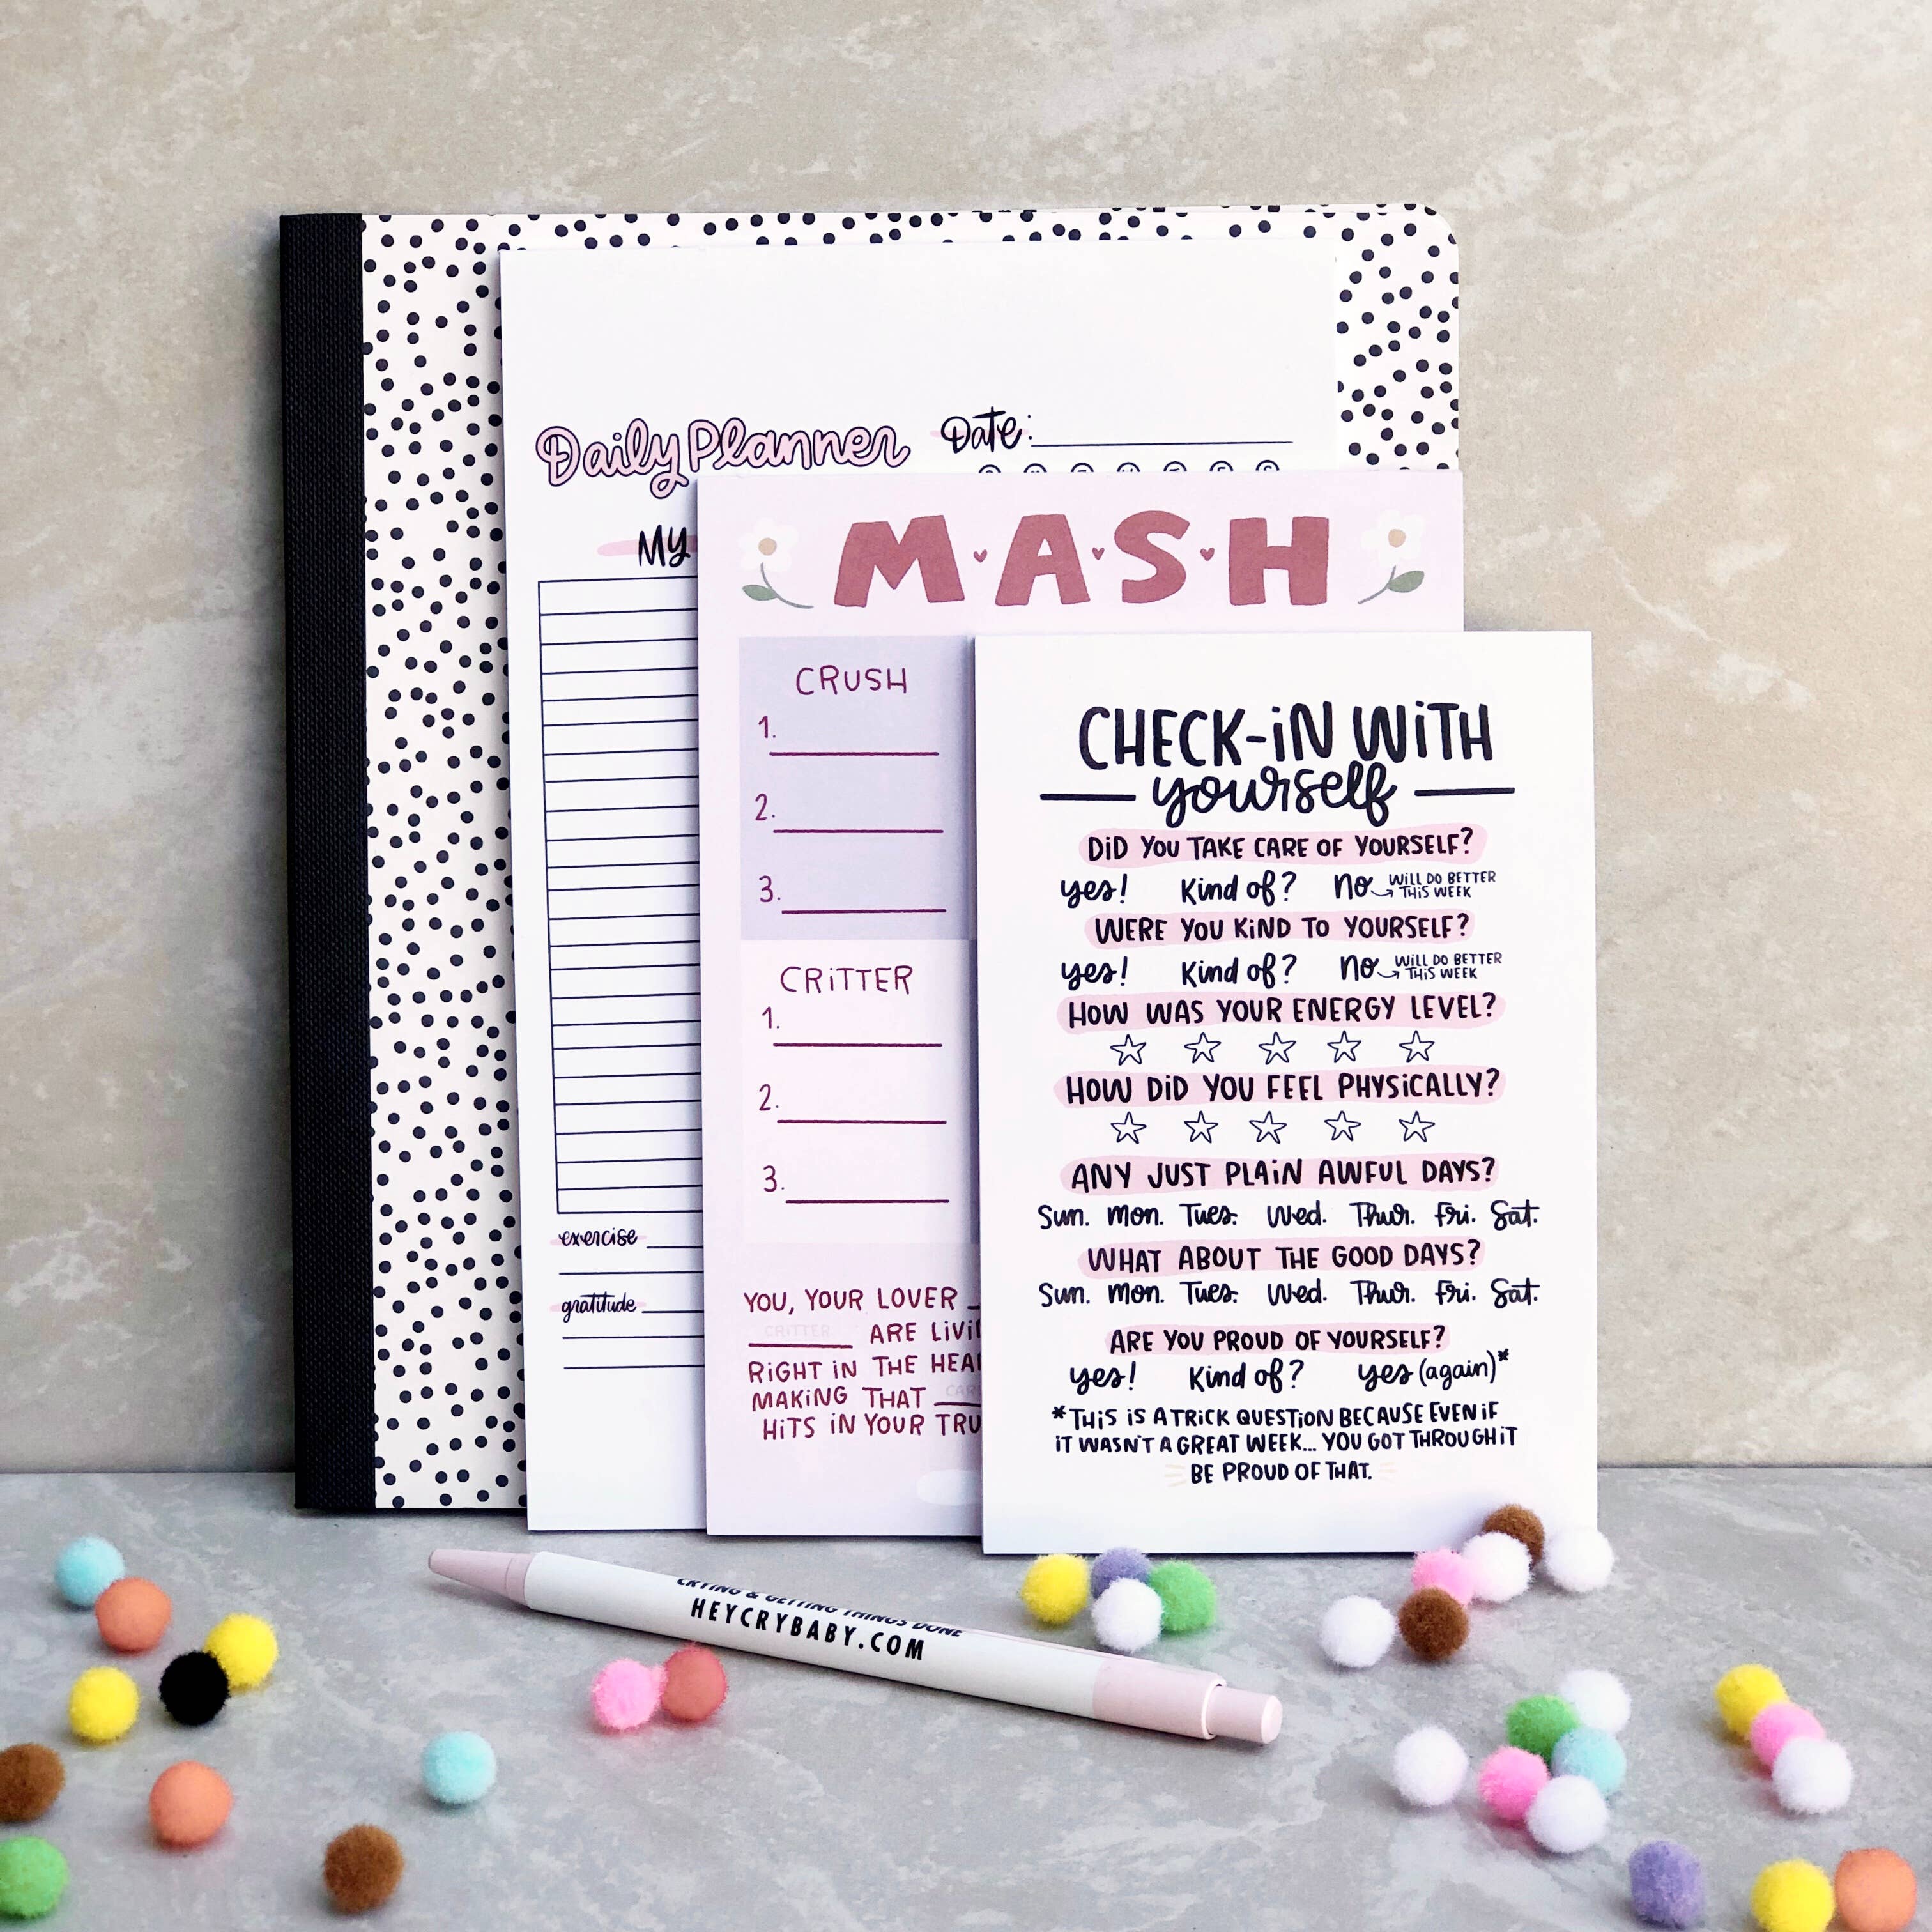 Daily Planner Date:
My
exercise
gratitude
M•A•S•H
CRUSH
1.
2.
3.
CRITTER
1.
2.
3.
YOU, YOUR LOVER
CRITTER ARE
RIGHT IN THE
MAKING THAT
HITS IN YOUR
CHECK-IN WITH
yourself
DID YOU TAKE CARE OF YOURSELF?
yes! Kind of? No WILL DO BETTER
THIS WEEK
WERE YOU KIND TO YOURSELF?
yes! Kind of? No WILL DO BETTER
THIS WEEK
HOW WAS YOUR ENERGY LEVEL?
HOW DID YOU FEEL PHYSICALLY?
ANY JUST PLAIN AWFUL DAYS?
Sun. Mon. Tues. Wed. Thur. Fri. Sat.
WHAT ABOUT THE GOOD DAYS?
Sun. Mon. Tues. Wed. Thur. Fri. Sat.
ARE YOU PROUD OF YOURSELF?
yes! Kind of? yes (again)*
*THIS IS A TRICK QUESTION BECAUSE EVEN IF
IT WASN'T A GREAT WEEK... YOU GOT THROUGH IT
BE PROUD OF THAT.
CRYING & GETTING THINGS DONE
HEYCRYBABY.COM